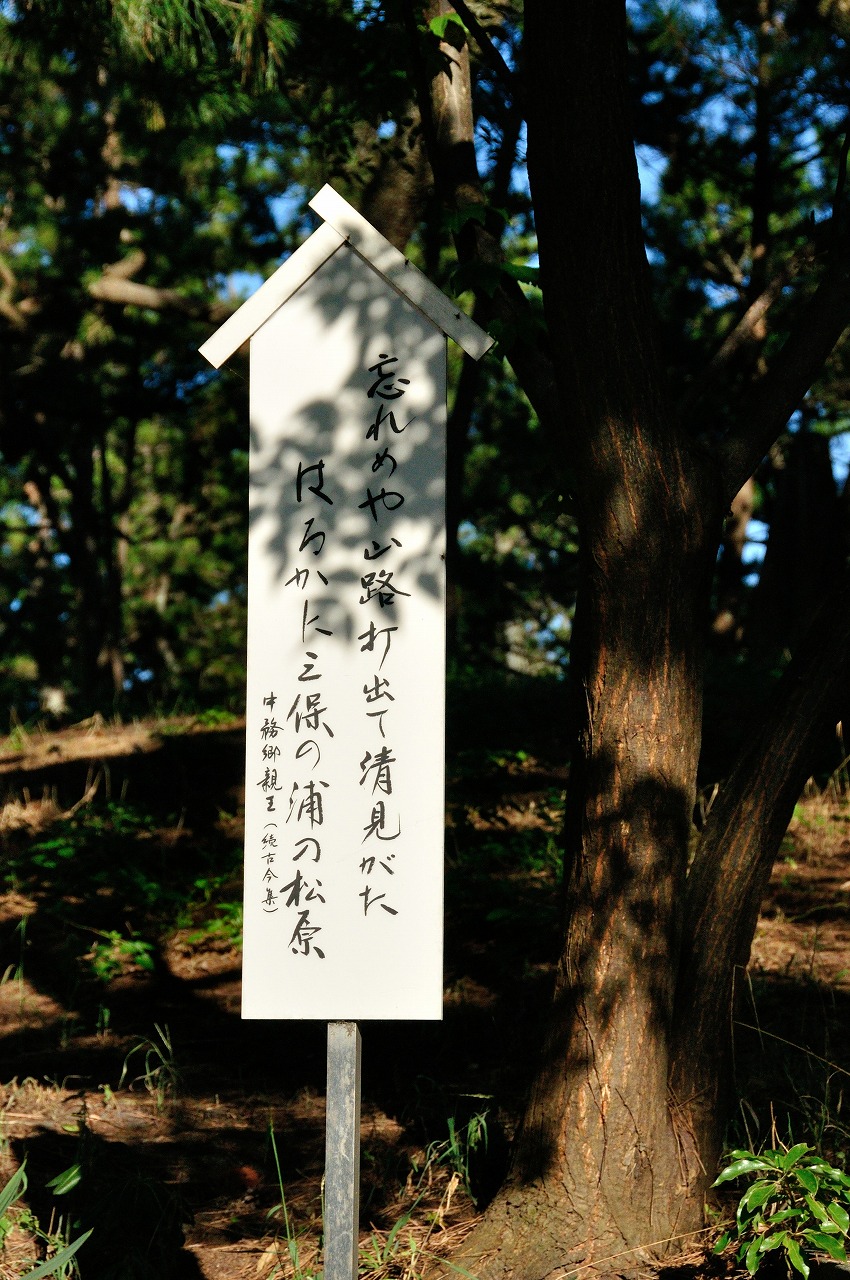 忘れめや山路打出て清見がた
はるかに三保の浦の松原
中務卿親王（続古今集）